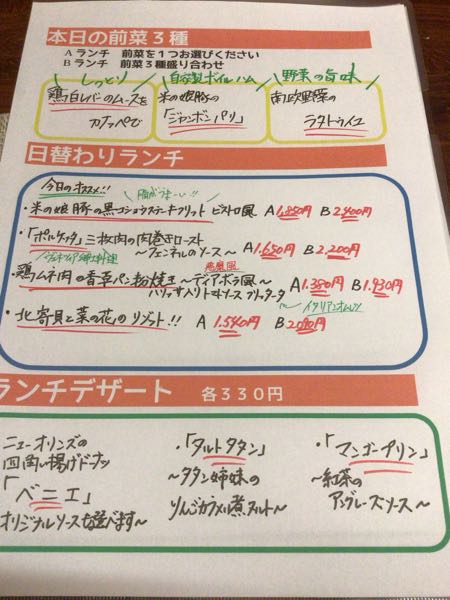 本日の前菜３種
Ａランチ 前菜を１つお選びください
Ｂランチ 前菜３種盛り合わせ
しっとり 自家製ボイルハム 野菜の旨味
鶏白レバーのムースを
カナッペで
米の娘豚の
「ジャンボンパリ」
南欧野菜の
ラタトゥイユ
日替わりランチ
今日のオススメ!!
脂がうまーい!!
・米の娘豚の黒コショウステーキフリット ビストロ風 A 1,850円 B 2,400円
・「ポルケッタ」三枚肉の肉巻きロースト
～フェンネルのソース～ A 1,650円 B 2,200円
郷土料理
悪魔風
・鶏ムネ肉の香草パン粉焼き ～ディアボラ風～ A 1,380円 B 1,930円
イタリアンオムレツ
・北寄貝と菜の花のリゾット!! A 1,540円 B 2,090円
ランチデザート 各３３０円
ニューオリンズの
四角い揚げドーナツ
「ベニエ」
オリジナルソースを選べます～
・「タルトタタン」
～タタン姉妹の
りんごカラメル煮タルト～
・「マンゴープリン」
～紅茶の
アングレーズソース～